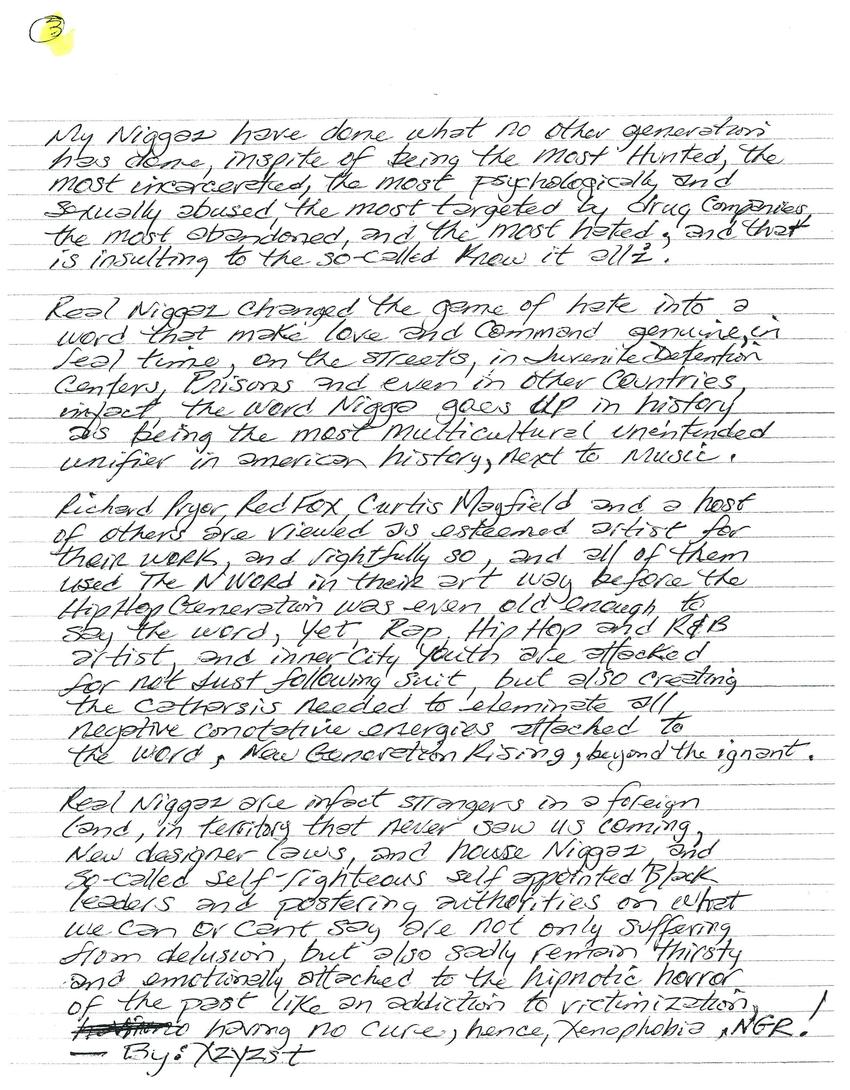 3
My Niggaz have done what no other generation
has done, inspite of being the most Hunted, the
most incarcereted, the most psychologically and
sexually abused, the most targeted by drug companies,
the most abandoned, and the most hated, and that
is insulting to the so-called know it allz.
Real Niggaz changed the game of hate into a
word that make love and command genuine, in
real time, on the streets, in Juvenile Detention
Centers, Prisons and even in other countries,
infact, the word Nigga goes up in history
as being the most multicultural unintended
unifier in american history, next to Music.
Richard Pryor, Red Fox, Curtis Mayfield and a host
of others are viewed as esteemed artist for
their work, and rightfully so, and all of them
used The N WORD in their art way before the
Hip Hop Generation was even old enough to
say the word, Yet, Rap, Hip Hop and R&B
artist, and inner City Youth are attacked
for not Just following suit, but also creating
the catharsis needed to eleminate all
negative conotative energies attached to
the word, New Generation Rising, beyond the ignant.
Real Niggaz are infact strangers in a foreign
land, in territory that never saw us coming,
New designer laws, and house Niggaz and
so-called self-righteous self appointed Black
leaders and postering authorities on what
we can or cant say are not only suffering
from delusion, but also sadly remain thirsty
and emotionally attached to the hipnotic horror
of the past like an addiction to victimization,
having no cure, hence, Xenophobia, NGR!
— By: Xzyzst